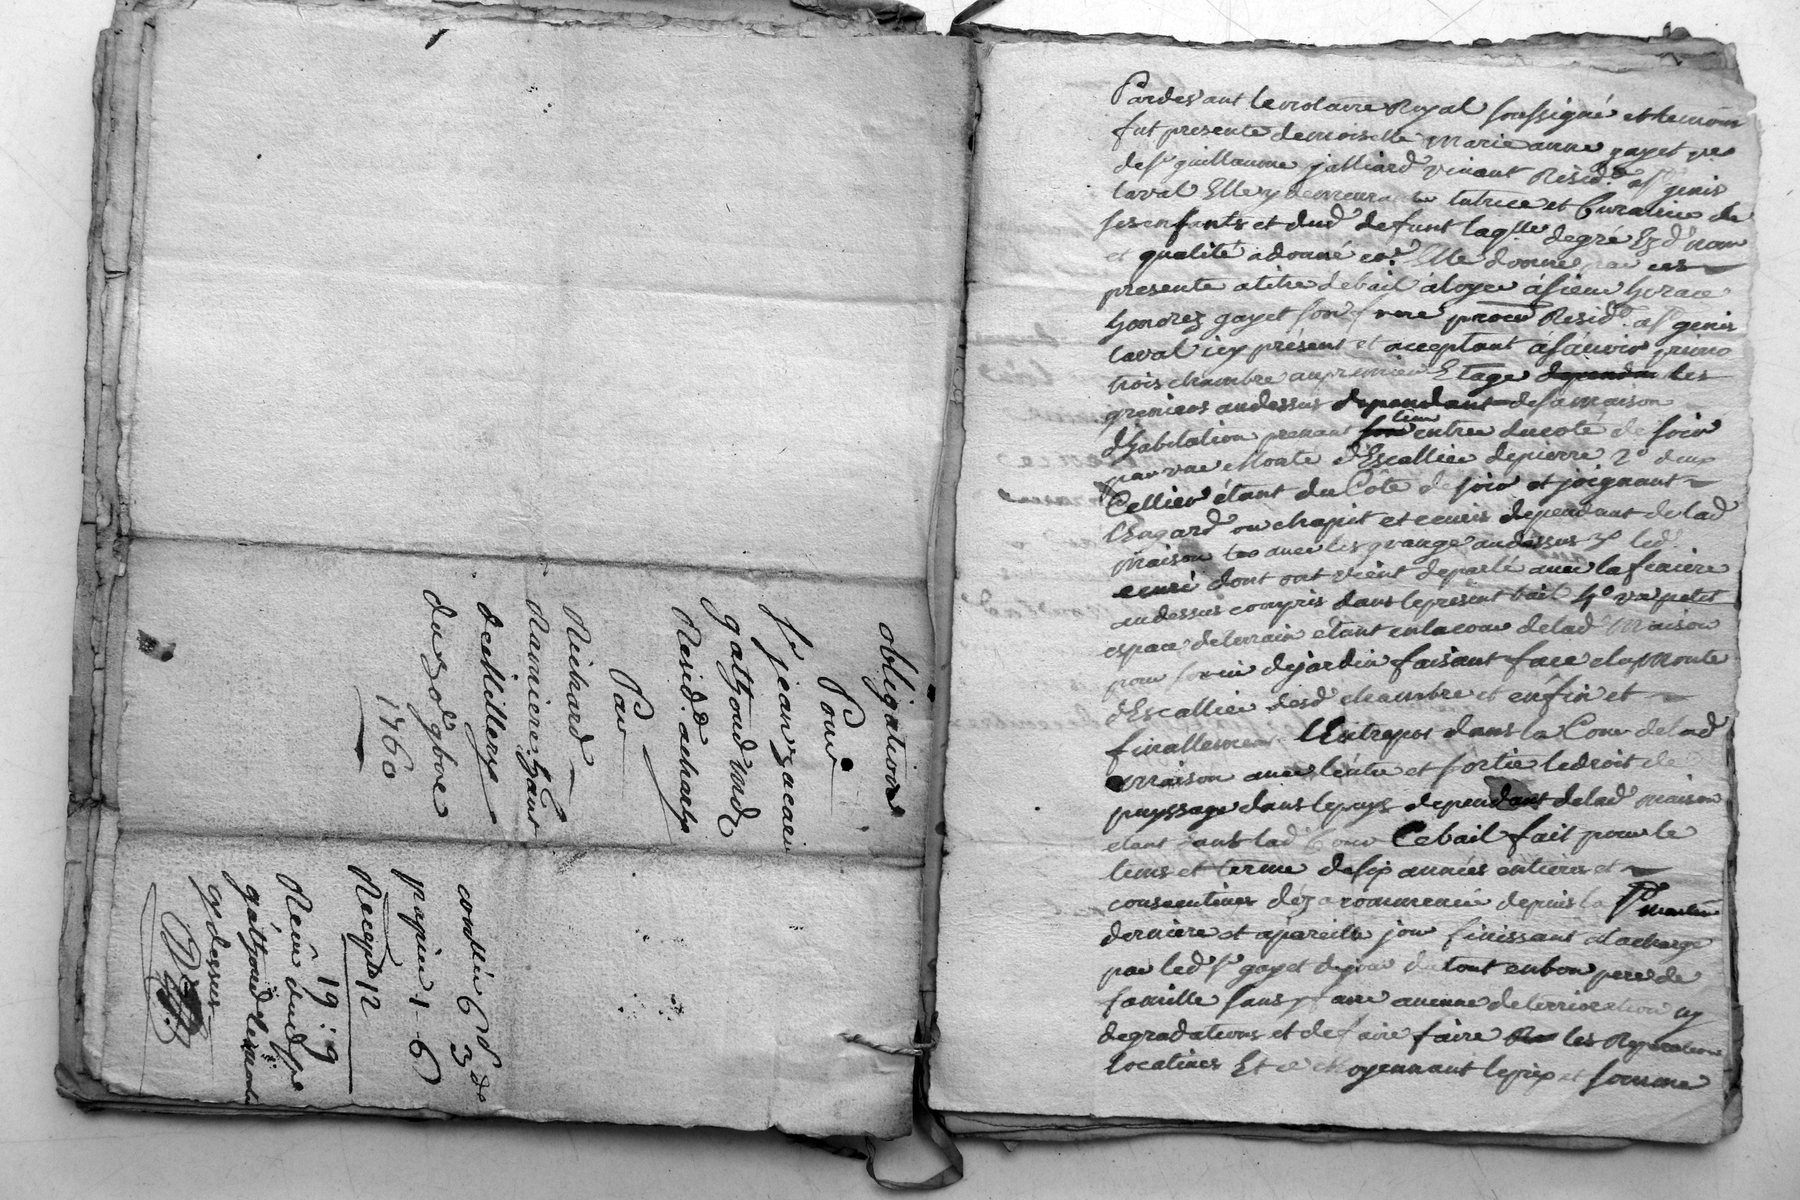 obligation
Pour
sr jean
gathoud vnd
Resid.d a charly
Par
Richard
de Millery
du 30 8bre
1760
6 3
papier 1 - 6
Recept 12
19 : 9
Receu dud sr
gathoud le
cy dessus
Pardevant le notaire Royal soussigné et temoins
fut presente demoiselle marie anne gayet
de sr guillaume jalliard vivant Resid.t a st genis
laval Elle y demeurante tutrice et Curatrice de
ses enfants et dud defunt laqlle degré Ez d nom
et qualité a donné co.e Elle donne par ces
presente a titre debail a loyer a sieur horace
honorez gayet son frere procur Resid.t a st genis
laval icy présent et acceptant a sauoir primo
trois chambre au premier Etage dependan les
greniers audessus dependant de sa maison
d'habitation prenant son leur entrée du coté de soir
par vne Monté d'Escallier de pierre 2º deux
Cellier étant du Côté de soir et joignant
l'Engard ou chapit et ecuris dependant de lad
maison avec les grange audessus led.
ecuri dont ont vient deparlé avec la feniere
audessus compris dans le present bail 4º vn petit
espace de terrain etant en la cour de lad Maison
pour servir de jardin faisant face a la Monté
d'Escallier desd chambre et enfin et
finallement l'Entrepos dans la Cour de lad
maison avec l'entré et sortie le droit de
puyssage dans le puys dependant de lad maison
etant dans lad Cour Ce bail fait pour le
tems et terme de six années entieres et
consecutives déz a commencé depuis la st martin
derniere et a pareille jour finissant a la charge
par led sr gayet de jouir du tout en bon pere de
famille sans y faire aucune deterrioration ny
degradations et de faire faire les Reparations
locatives Et ce Moyennant le prix et somme